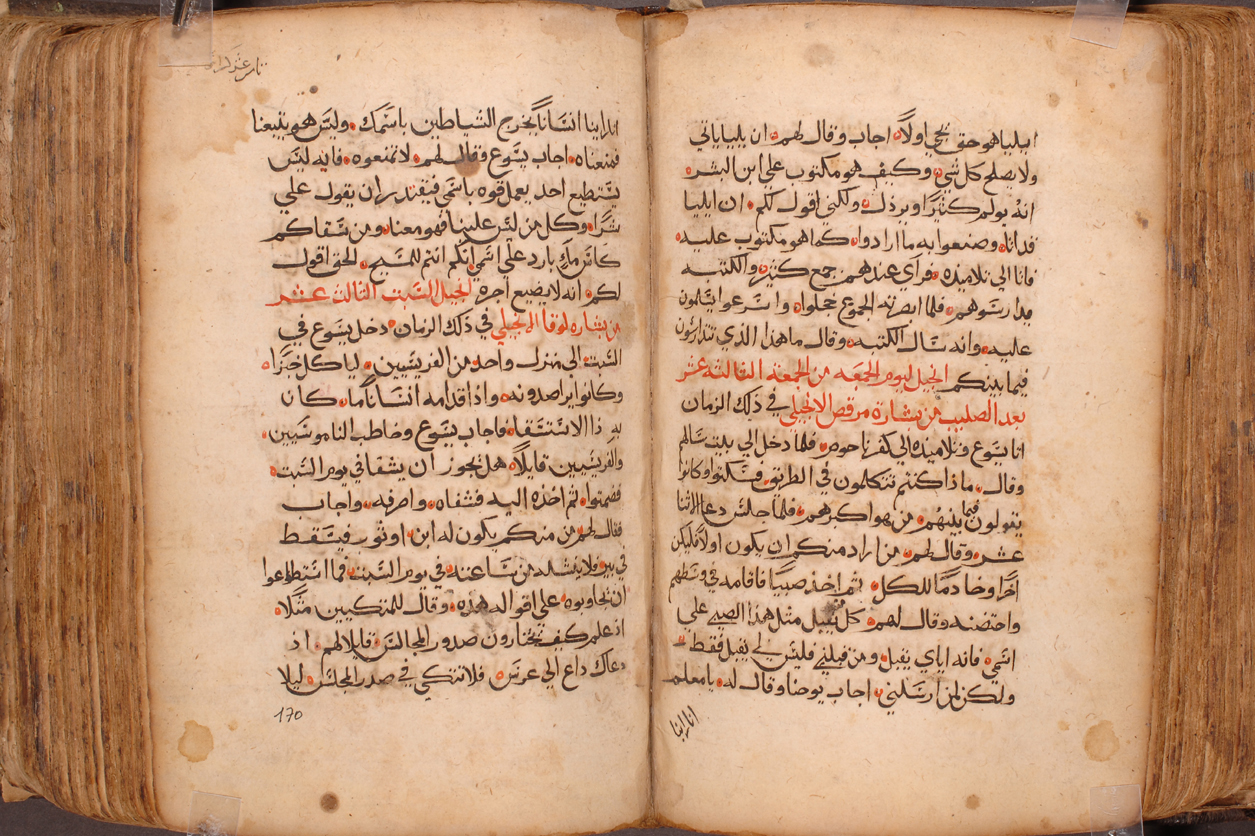 ايليا هو حق يجي اولاً اجاب وقال لهم ان يليا ياتي
ولا يصلح كل شي وكيف هو مكتوب علي ابن البشر
انه يولم كثيرًا ويرذل ولكني اقول لكم ان ايليا
قد اتا وصنعوا به ما ارادوا كما هو مكتوب عليه
فاتا الي تلاميذه فراي عندهم جمع كثير والكتبه
يدارسوهم فلما ابصرته الجموع خجلوا واسرعوا يسلمون
عليه وانه سال الكتبه وقال ما هذا الذي تتدارسون
فيما بينكم انجيل ليوم الجمعه من الجمعة الثالثه عشر
بعد الصليب من بشارة مرقص الانجيلي في ذلك الزمان
اتا يسوع وتلاميذه الي كفرناحوم فلما دخل الي بيت سالهم
وقال ماذا كنتم تتكلمون في الطريق فسكتوا وكانوا
يقولون فيما بينهم من هو اكبرهم فلما جلس دعا الاثنا
عشر وقال لهم من اراد منكم ان يكون اولاً فليكن
اخرًا وخادمًا للكل ثم اخذ صبيًا فاقامه في وسطهم
واحتضنه وقال لهم كل يقبل مثل هذا الصبي علي
اسمي فانه اياي يقبل ومن قبلني فليس لي يقبل فقط
ولكن لمن ارسلني اجاب يوحنا وقال له يا معلم
انا راينا
انا راينا انسانًا يخرج الشياطين باسمك وليس هو يتبعنا
فمنعناه اجاب يسوع وقال لهم لا تمنعوه فانه ليس
يستطيع احد يعمل قوه باسمي فيقتدر ان يقول علي
شرًا وكل من ليس علينا فهو معنا ومن سقاكم
كاس ما بارد علي اسمي انكم انتم للمسيح الحق اقول
لكم انه لا يضيع اجره انجيل السبت الثالث عشر
من بشاره لوقا الانجيلي في ذلك الزمان دخل يسوع في
السبت الي منزل واحد من الفريسيين لياكل خبزًا
وكانوا يراصدونه واذا قدامه انسانًا ما كان
به ذا الاستسقا فاجاب يسوع وخاطب الناموسيين
والفريسيين قايلاً هل يجوز ان يشفا في يوم السبت
فصمتوا ثم اخذه اليه فشفاه واصرفه واجاب
فقال لهم من منكم يكون له ابن اوثور فيسقط
في بير فلا ينشله من ساعته في يوم السبت فما استطاعوا
ان يجاوبوه علي اقواله هذه وقال للمتكيين مثلاً
اذ علم كيف تختارون صدور المجالس قايلا لهم اذ
دعاك داع الي عرس فلا تتكي في صدر المجلس ليلا
170